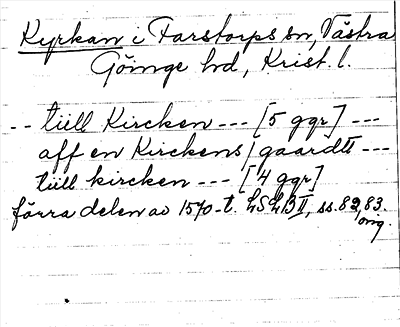 Kyrkan i Farstorps sn, Västra
Göinge hd, Krist. l.
-- tiill Kircken --- [5 ggr] ---
aff en Kirckens/gaardtt ---
tiill kircken --- [4 ggr]
förra delen av 1570-t. LSLB II, ss. 82, 83.
orig.